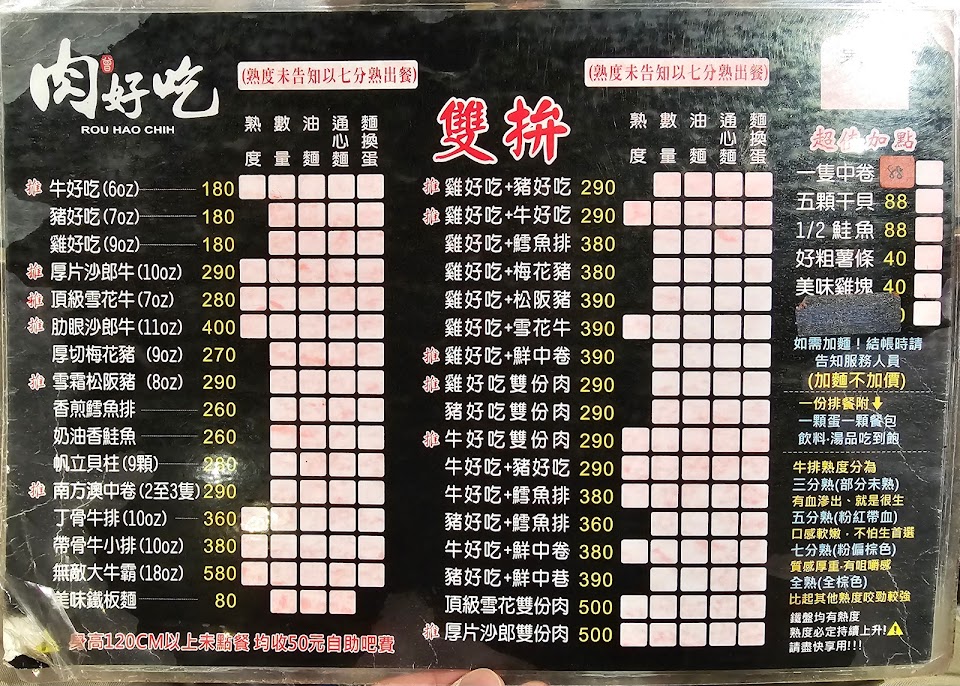 肉好吃
曾
ROU HAO CHIH
(熟度未告知以七分熟出餐)
熟度 數量 油麵 通心麵 麵換蛋
推 牛好吃(6oz) 180
豬好吃(7oz) 180
雞好吃(9oz) 180
推 厚片沙郎牛(10oz) 290
推 頂級雪花牛(7oz) 280
推 肋眼沙郎牛(11oz) 400
厚切梅花豬 (9oz) 270
推 雪霜松阪豬 (8oz) 290
香煎鱈魚排 260
奶油香鮭魚 260
帆立貝柱(9顆) 280
推 南方澳中卷(2至3隻) 290
丁骨牛排(10oz) 360
帶骨牛小排(10oz) 380
無敵大牛霸(18oz) 580
美味鐵板麵 80
身高120CM以上未點餐 均收50元自助吧費
雙拚
(熟度未告知以七分熟出餐)
熟度 數量 油麵 通心麵 麵換蛋
推 雞好吃+豬好吃 290
推 雞好吃+牛好吃 290
雞好吃+鱈魚排 380
雞好吃+梅花豬 380
雞好吃+松阪豬 390
雞好吃+雪花牛 390
推 雞好吃+鮮中卷 390
推 雞好吃雙份肉 290
豬好吃雙份肉 290
推 牛好吃雙份肉 290
牛好吃+豬好吃 290
牛好吃+鱈魚排 380
豬好吃+鱈魚排 360
牛好吃+鮮中卷 380
豬好吃+鮮中巷 390
頂級雪花雙份肉 500
推 厚片沙郎雙份肉 500
超值加點
一隻中卷
五顆干貝 88
1/2 鮭魚 88
好粗薯條 40
美味雞塊 40
如需加麵！結帳時請
告知服務人員
(加麵不加價)
一份排餐附
一顆蛋一顆餐包
飲料·湯品吃到飽
牛排熟度分為
三分熟(部分未熟)
有血滲出、就是很生
五分熟(粉紅帶血)
口感軟嫩，不怕生首選
七分熟(粉偏棕色)
質感厚重·有咀嚼感
全熟(全棕色)
比起其他熟度咬勁較強
鐵盤均有熟度
熟度必定持續上升!
請盡快享用!!!